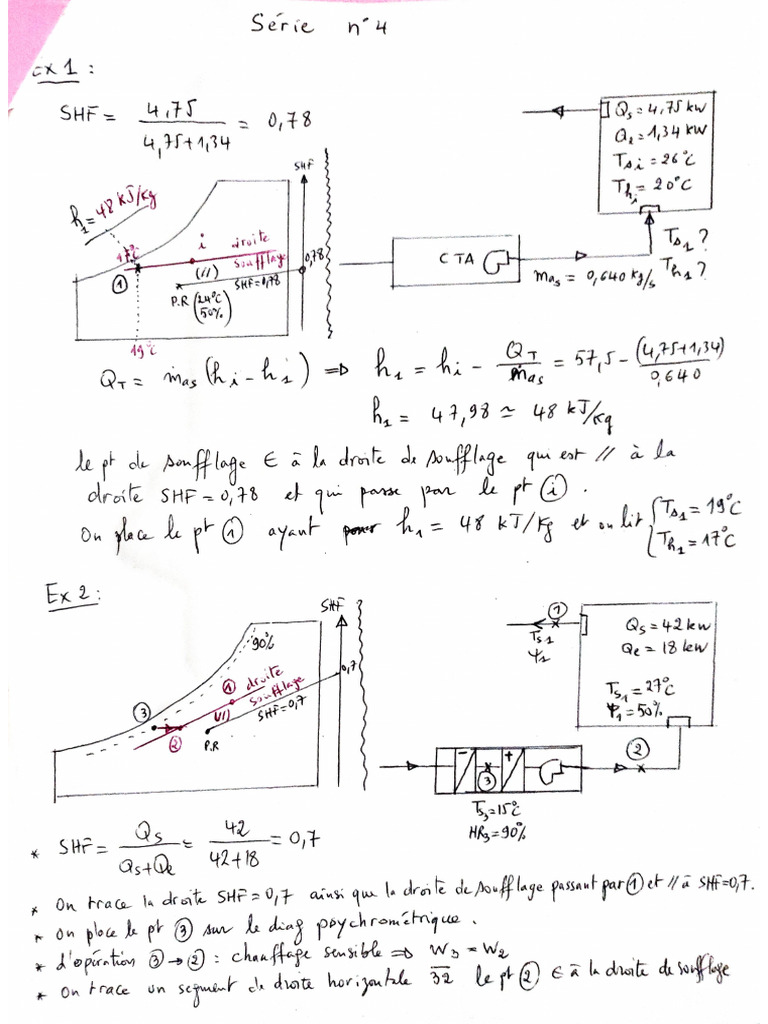 Série n°4
Ex 1 :
SHF = 4,75 / (4,75+1,34) = 0,78
Qs = 4,75 kW
Qe = 1,34 kW
Tsi = 26°C
Thi = 20°C
SHF
h1 = 48 kJ/kg
17°C
i
droite
soufflage
0,78
(//)
SHF=0,78
1
P.R (24°C 50%)
19°C
CTA
mas = 0,640 kg/s
Ts1 ?
Th1 ?
QT = ṁas (hi - h1) => h1 = hi - QT/ṁas = 57,5 - (4,75+1,34)/0,640
h1 = 47,98 ≃ 48 kJ/kg
le pt de soufflage ∈ à la droite de soufflage qui est // à la
droite SHF = 0,78 et qui passe par le pt (i).
On place le pt (1) ayant h1 = 48 kJ/kg et on lit { Ts1 = 19°C
Th1 = 17°C
Ex 2 :
SHF
90%
0,7
1
droite
soufflage
(//)
SHF=0,7
3
2
P.R
1
Ts1
φ1
Qs = 42 kW
Qe = 18 kW
Ts1 = 27°C
φ1 = 50%
2
- +
3
Ts3 = 15°C
HR3 = 90%
* SHF = Qs / (Qs+Qe) = 42 / (42+18) = 0,7
* On trace la droite SHF = 0,7 ainsi que la droite de soufflage passant par (1) et // à SHF=0,7.
* on place le pt (3) sur le diag psychrométrique.
* d'opération (3) → (2) : chauffage sensible => W3 = W2
* on trace un segment de droite horizontale 32 le pt (2) ∈ à la droite de soufflage